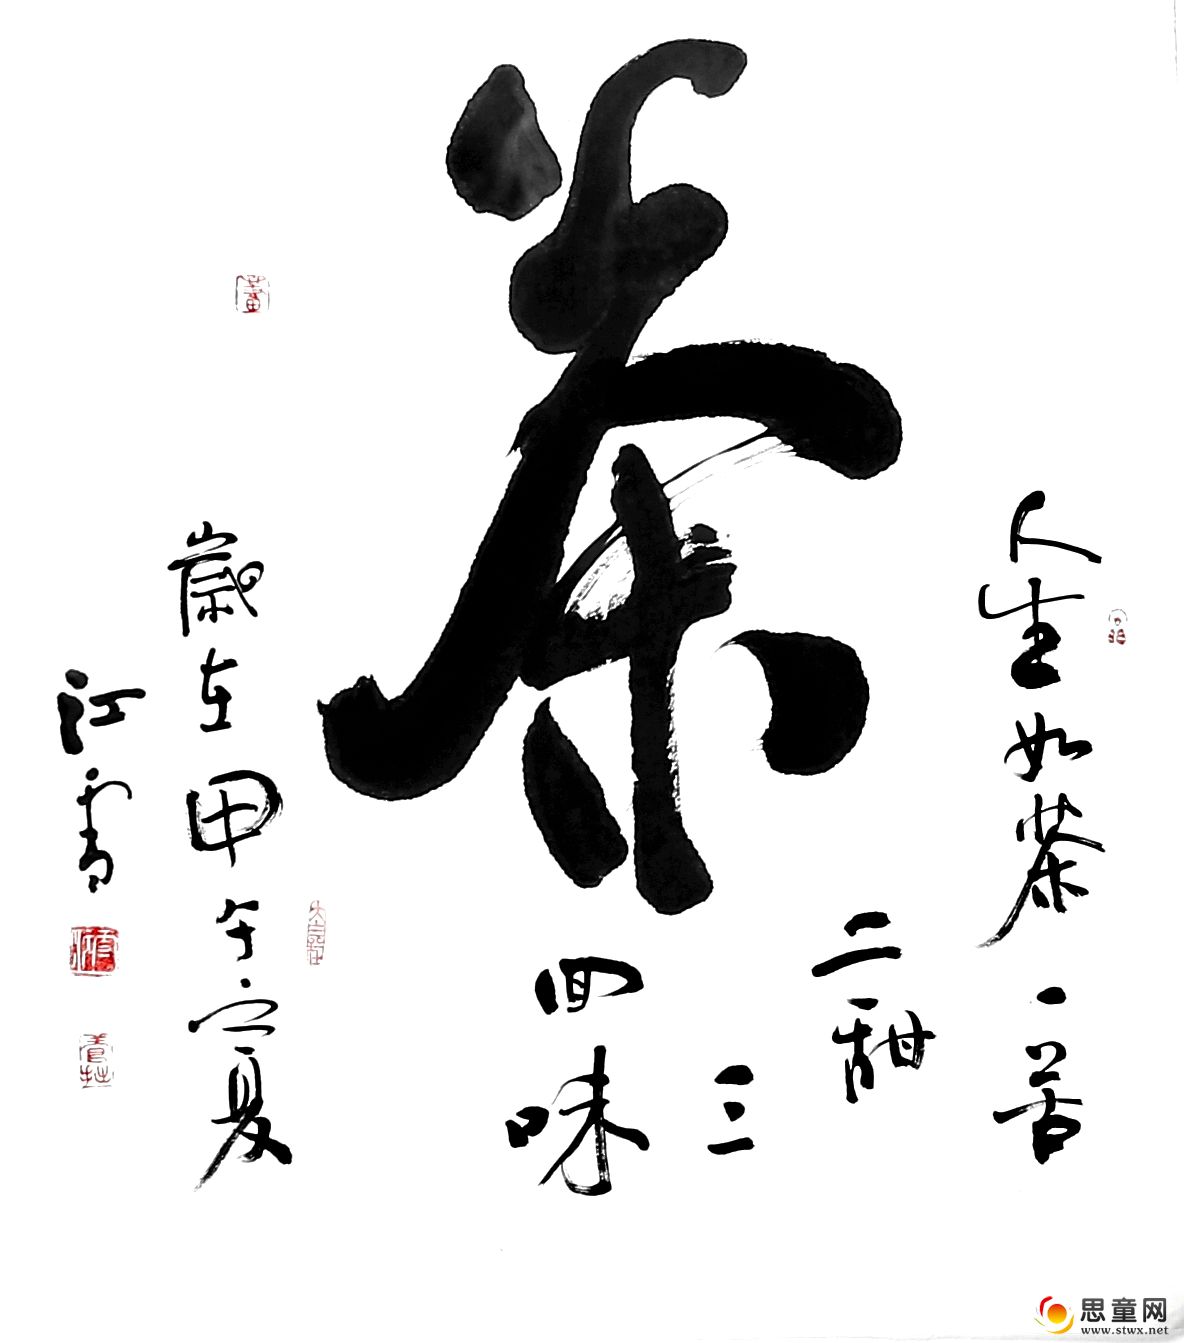 茶
人生如茶一苦
二甜
三
回味
歲在甲午之夏
江雪
思童网
www.stwx.net